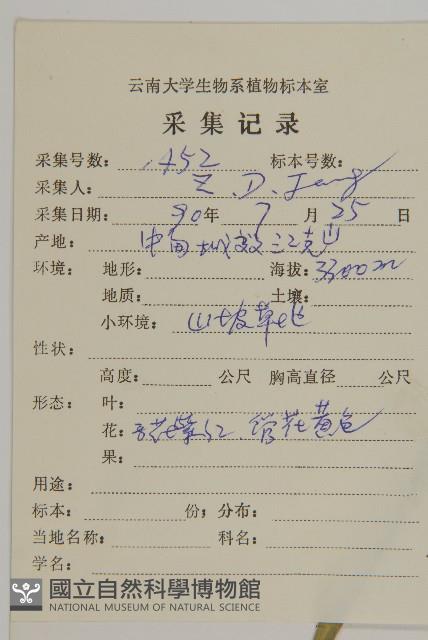 云南大学生物系植物标本室
采集记录
采集号数： 452 标本号数：
采集人： Z. D.
采集日期： 90年 7月 25日
产地： 中甸
环境： 地形： 海拔：3300m
地质： 土壤：
小环境： 山坡草地
性状：
高度： 公尺 胸高直径 公尺
形态： 叶：
花： 舌花紫红 管花黄色
果：
用途：
标本： 份；分布：
当地名称： 科名：
学名：
國立自然科學博物館
NATIONAL MUSEUM OF NATURAL SCIENCE